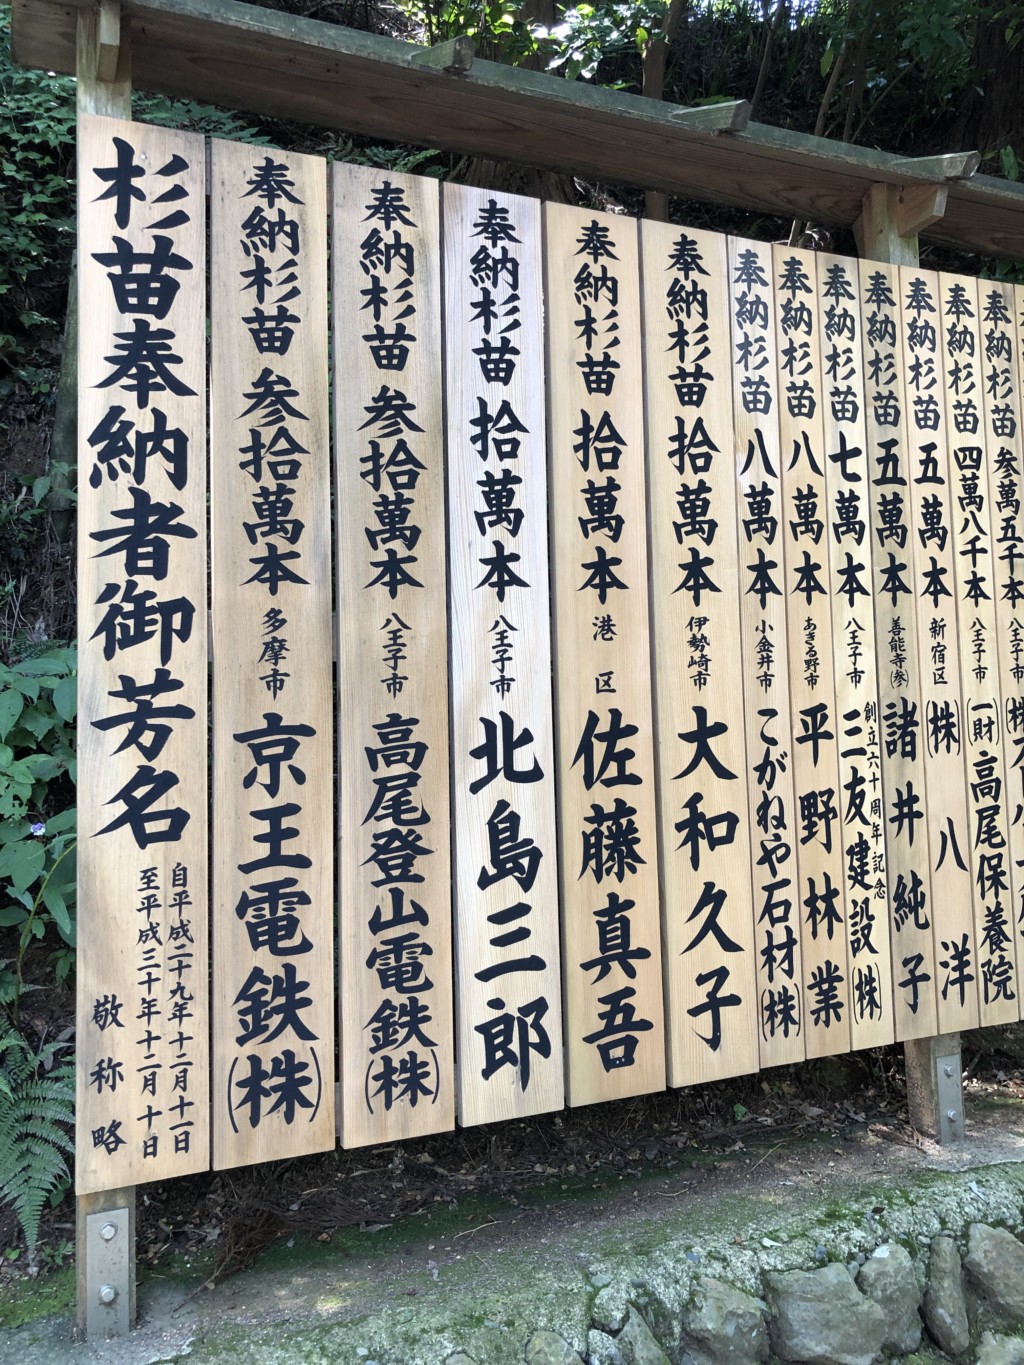 杉苗奉納者御芳名
自平成二十九年十二月十一日
至平成三十年十二月十日
敬称略
奉納杉苗 参拾萬本 多摩市 京王電鉄(株)
奉納杉苗 参拾萬本 八王子市 高尾登山電鉄(株)
奉納杉苗 拾萬本 八王子市 北島三郎
奉納杉苗 拾萬本 港区 佐藤真吾
奉納杉苗 拾萬本 伊勢崎市 大和久子
奉納杉苗 八萬本 小金井市 こがねや石材(株)
奉納杉苗 八萬本 あきる野市 平野林業
奉納杉苗 七萬本 八王子市 創立六十周年記念 三友建設(株)
奉納杉苗 五萬本 善能寺(参) 諸井純子
奉納杉苗 五萬本 新宿区 (株)八洋
奉納杉苗 四萬八千本 八王子市 (一財)高尾保養院
奉納杉苗 参萬五千本 八王子市 (株)